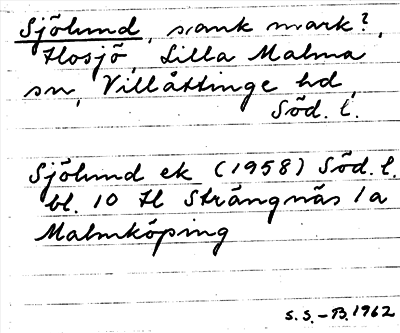 Sjölund, sank mark?,
Hosjö, Lilla Malma
sn, Villåttinge hd,
Söd. l.
Sjölund ek (1958) Söd. l.
bl. 10 H Strängnäs 1a
Malmköping
S.S.-B. 1962